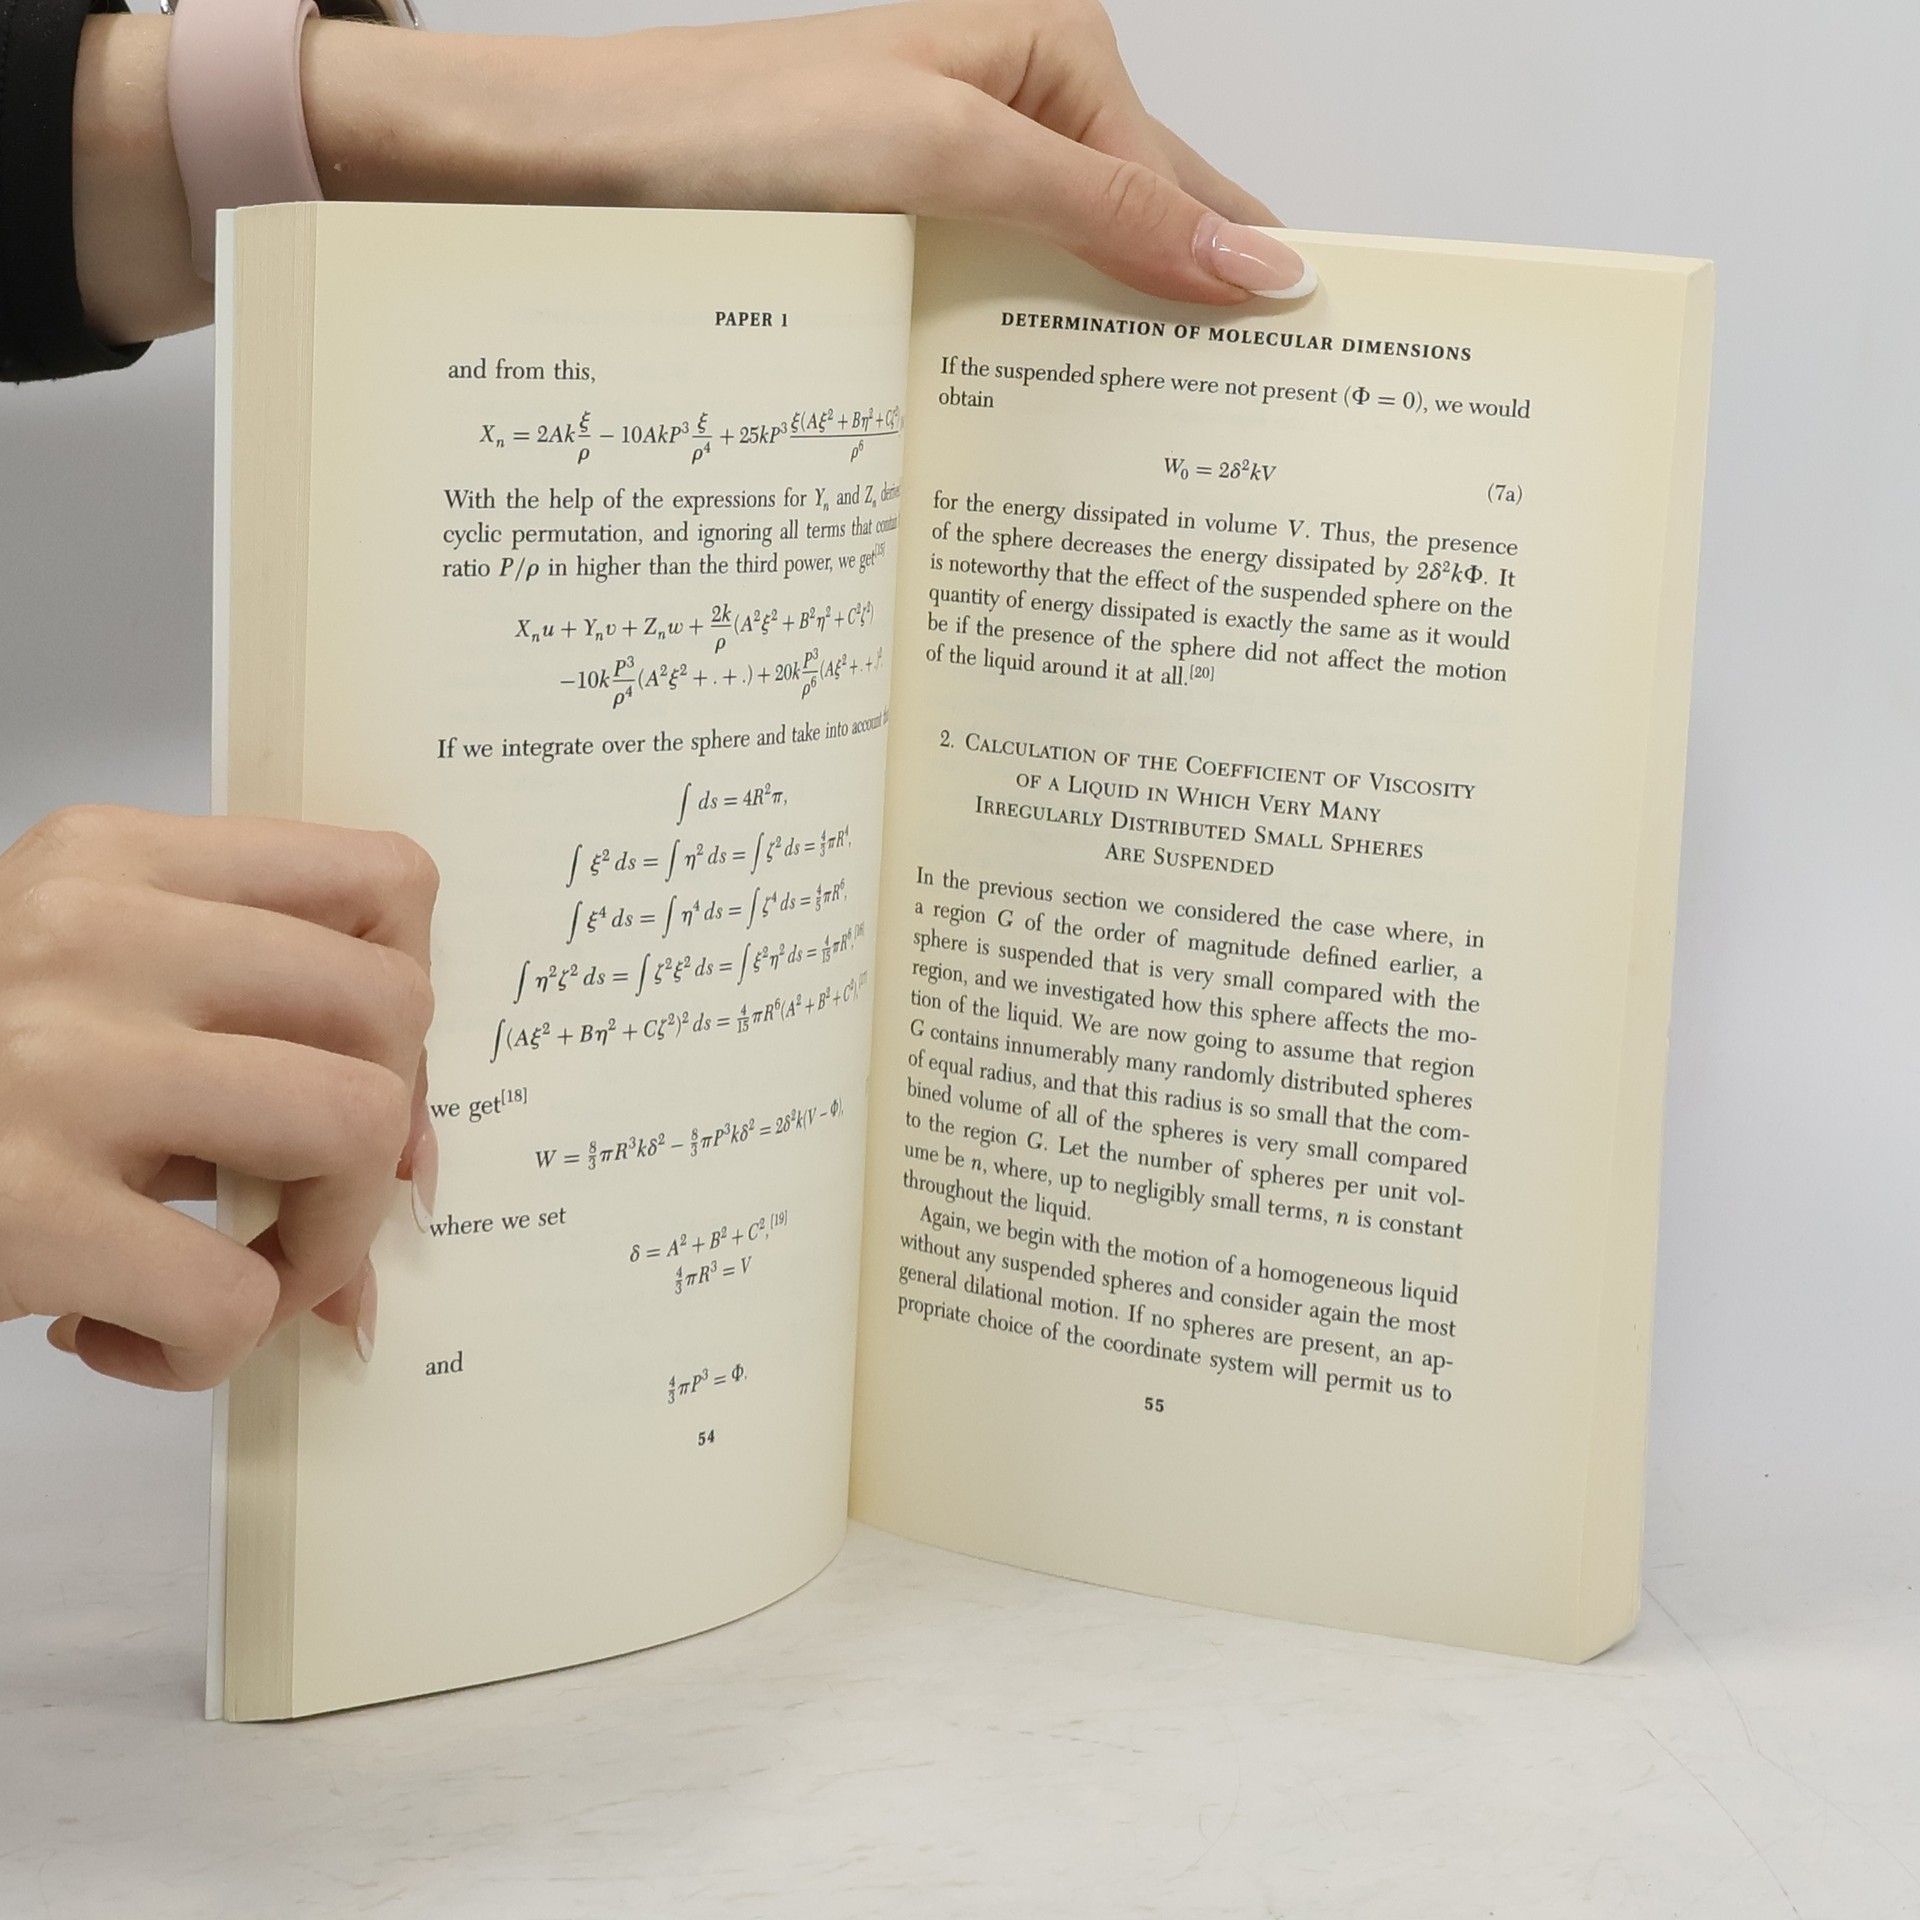 PAPER 1
and from this,
Xₙ = 2Ak ξ/ρ − 10AkP³ ξ/ρ⁴ + 25kP³ ξ(Aξ² + Bη² + Cζ²)/ρ⁶
With the help of the expressions for Yₙ and Zₙ
cyclic permutation, and ignoring all terms that
ratio P/ρ in higher than the third power, we get[15]
Xₙu + Yₙv + Zₙw + 2k/ρ (A²ξ² + B²η² + C²ζ²)
−10k P³/ρ⁴ (A²ξ² + . + .) + 20k P³/ρ⁶ (Aξ² + . + .)²
If we integrate over the sphere and take into account
∫ ds = 4R²π,
∫ ξ² ds = ∫ η² ds = ∫ ζ² ds = 4/3 πR⁴,
∫ ξ⁴ ds = ∫ η⁴ ds = ∫ ζ⁴ ds = 4/5 πR⁶,
∫ η²ζ² ds = ∫ ζ²ξ² ds = ∫ ξ²η² ds = 4/15 πR⁶,[16]
∫ (Aξ² + Bη² + Cζ²)² ds = 4/15 πR⁶(A² + B² + C²),
we get[18]
W = 8/3 πR³kδ² − 8/3 πP³kδ² = 2δ²k(V − Φ),
where we set
δ = A² + B² + C²,[19]
4/3 πR³ = V
and
4/3 πP³ = Φ.
54
DETERMINATION OF MOLECULAR DIMENSIONS
If the suspended sphere were not present (Φ = 0), we would
obtain
W₀ = 2δ²kV (7a)
for the energy dissipated in volume V. Thus, the presence
of the sphere decreases the energy dissipated by 2δ²kΦ. It
is noteworthy that the effect of the suspended sphere on the
quantity of energy dissipated is exactly the same as it would
be if the presence of the sphere did not affect the motion
of the liquid around it at all.[20]
2. CALCULATION OF THE COEFFICIENT OF VISCOSITY
OF A LIQUID IN WHICH VERY MANY
IRREGULARLY DISTRIBUTED SMALL SPHERES
ARE SUSPENDED
In the previous section we considered the case where, in
a region G of the order of magnitude defined earlier, a
sphere is suspended that is very small compared with the
region, and we investigated how this sphere affects the mo-
tion of the liquid. We are now going to assume that region
G contains innumerably many randomly distributed spheres
of equal radius, and that this radius is so small that the com-
bined volume of all of the spheres is very small compared
to the region G. Let the number of spheres per unit vol-
ume be n, where, up to negligibly small terms, n is constant
throughout the liquid.
Again, we begin with the motion of a homogeneous liquid
without any suspended spheres and consider again the most
general dilational motion. If no spheres are present, an ap-
propriate choice of the coordinate system will permit us to
55